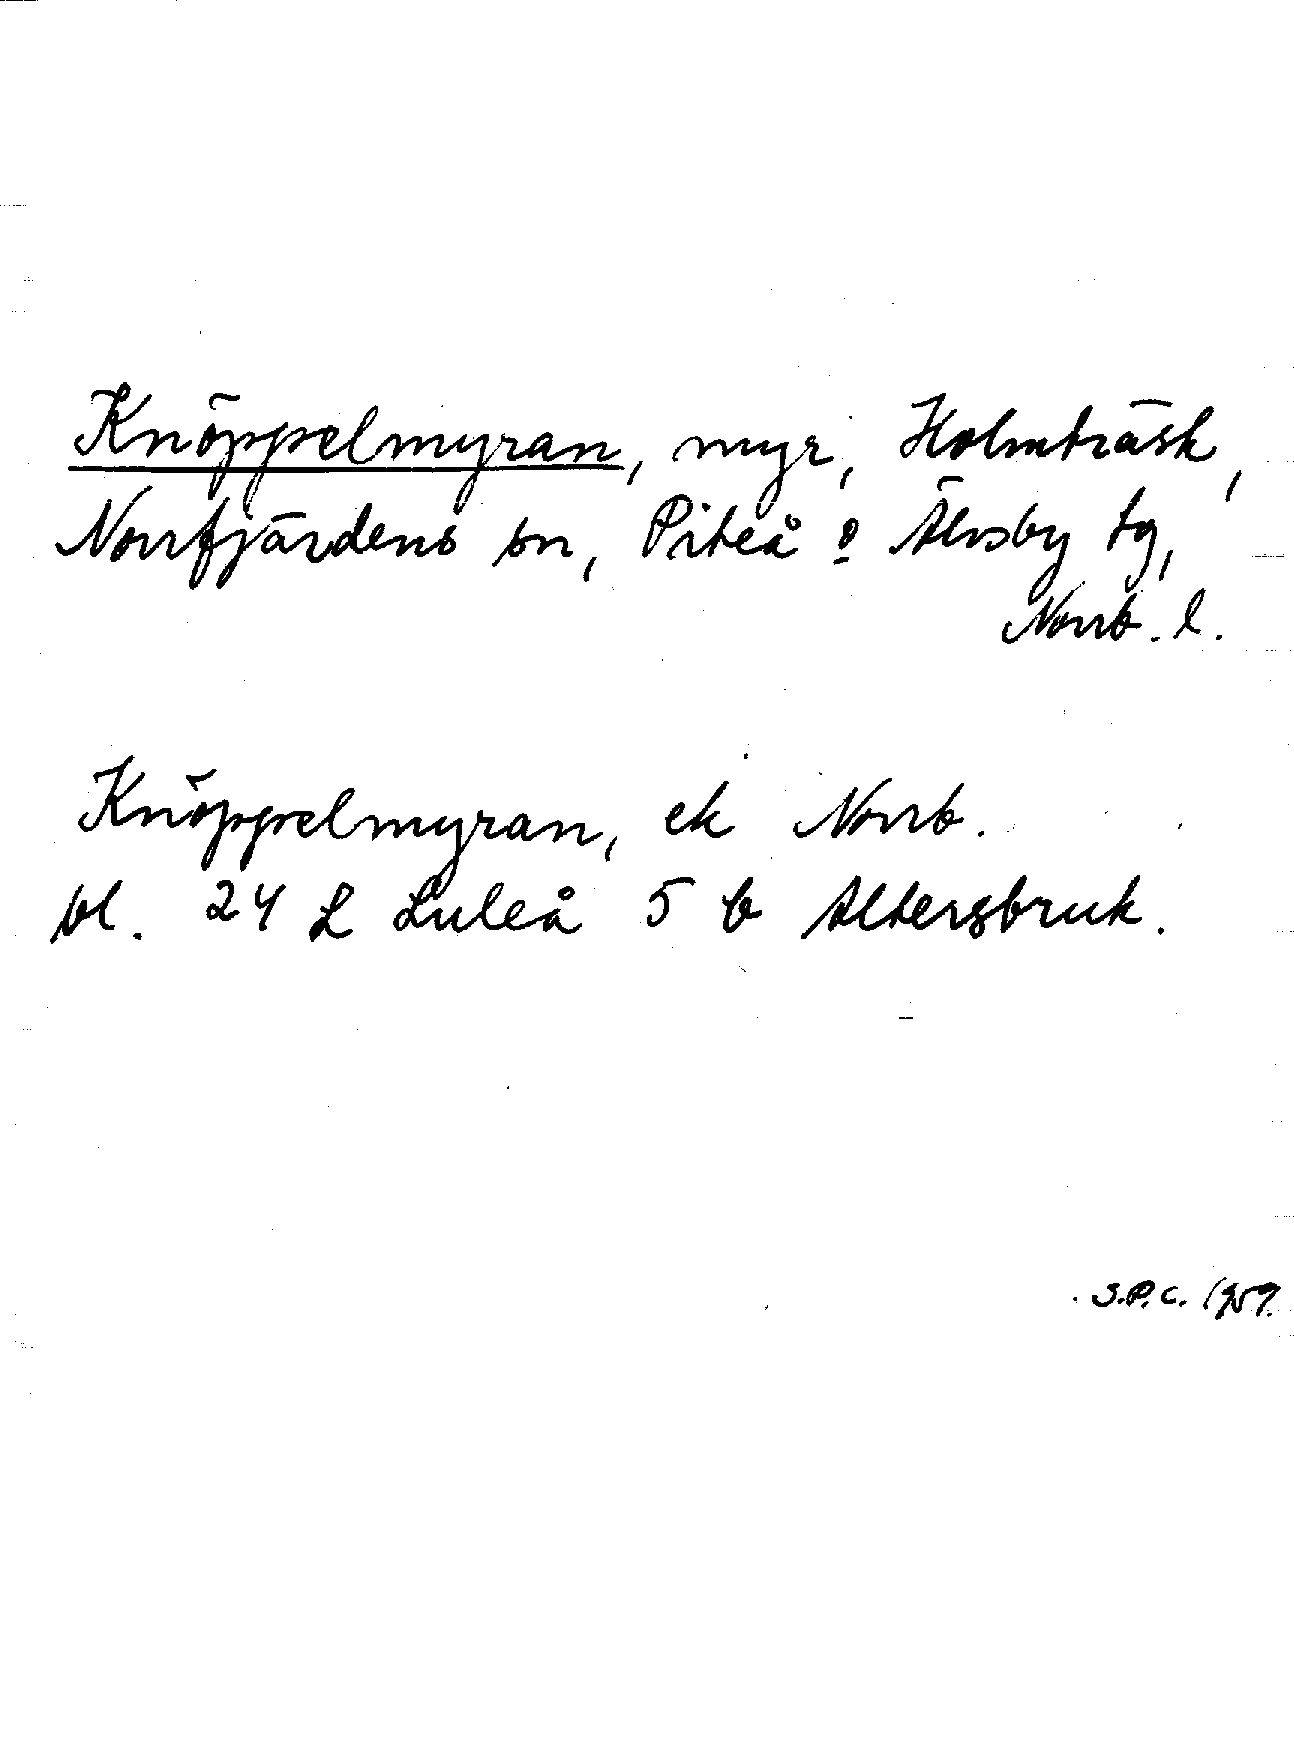 Knöppelmyran, myr, Holmträsk,
Norrfjärdens sn, Piteå o Älvsby tg,
Norrb. l.
Knöppelmyran, ek Norrb.
bl. 24 L Luleå 5 b Altersbruk.
S.P.C. 1959.